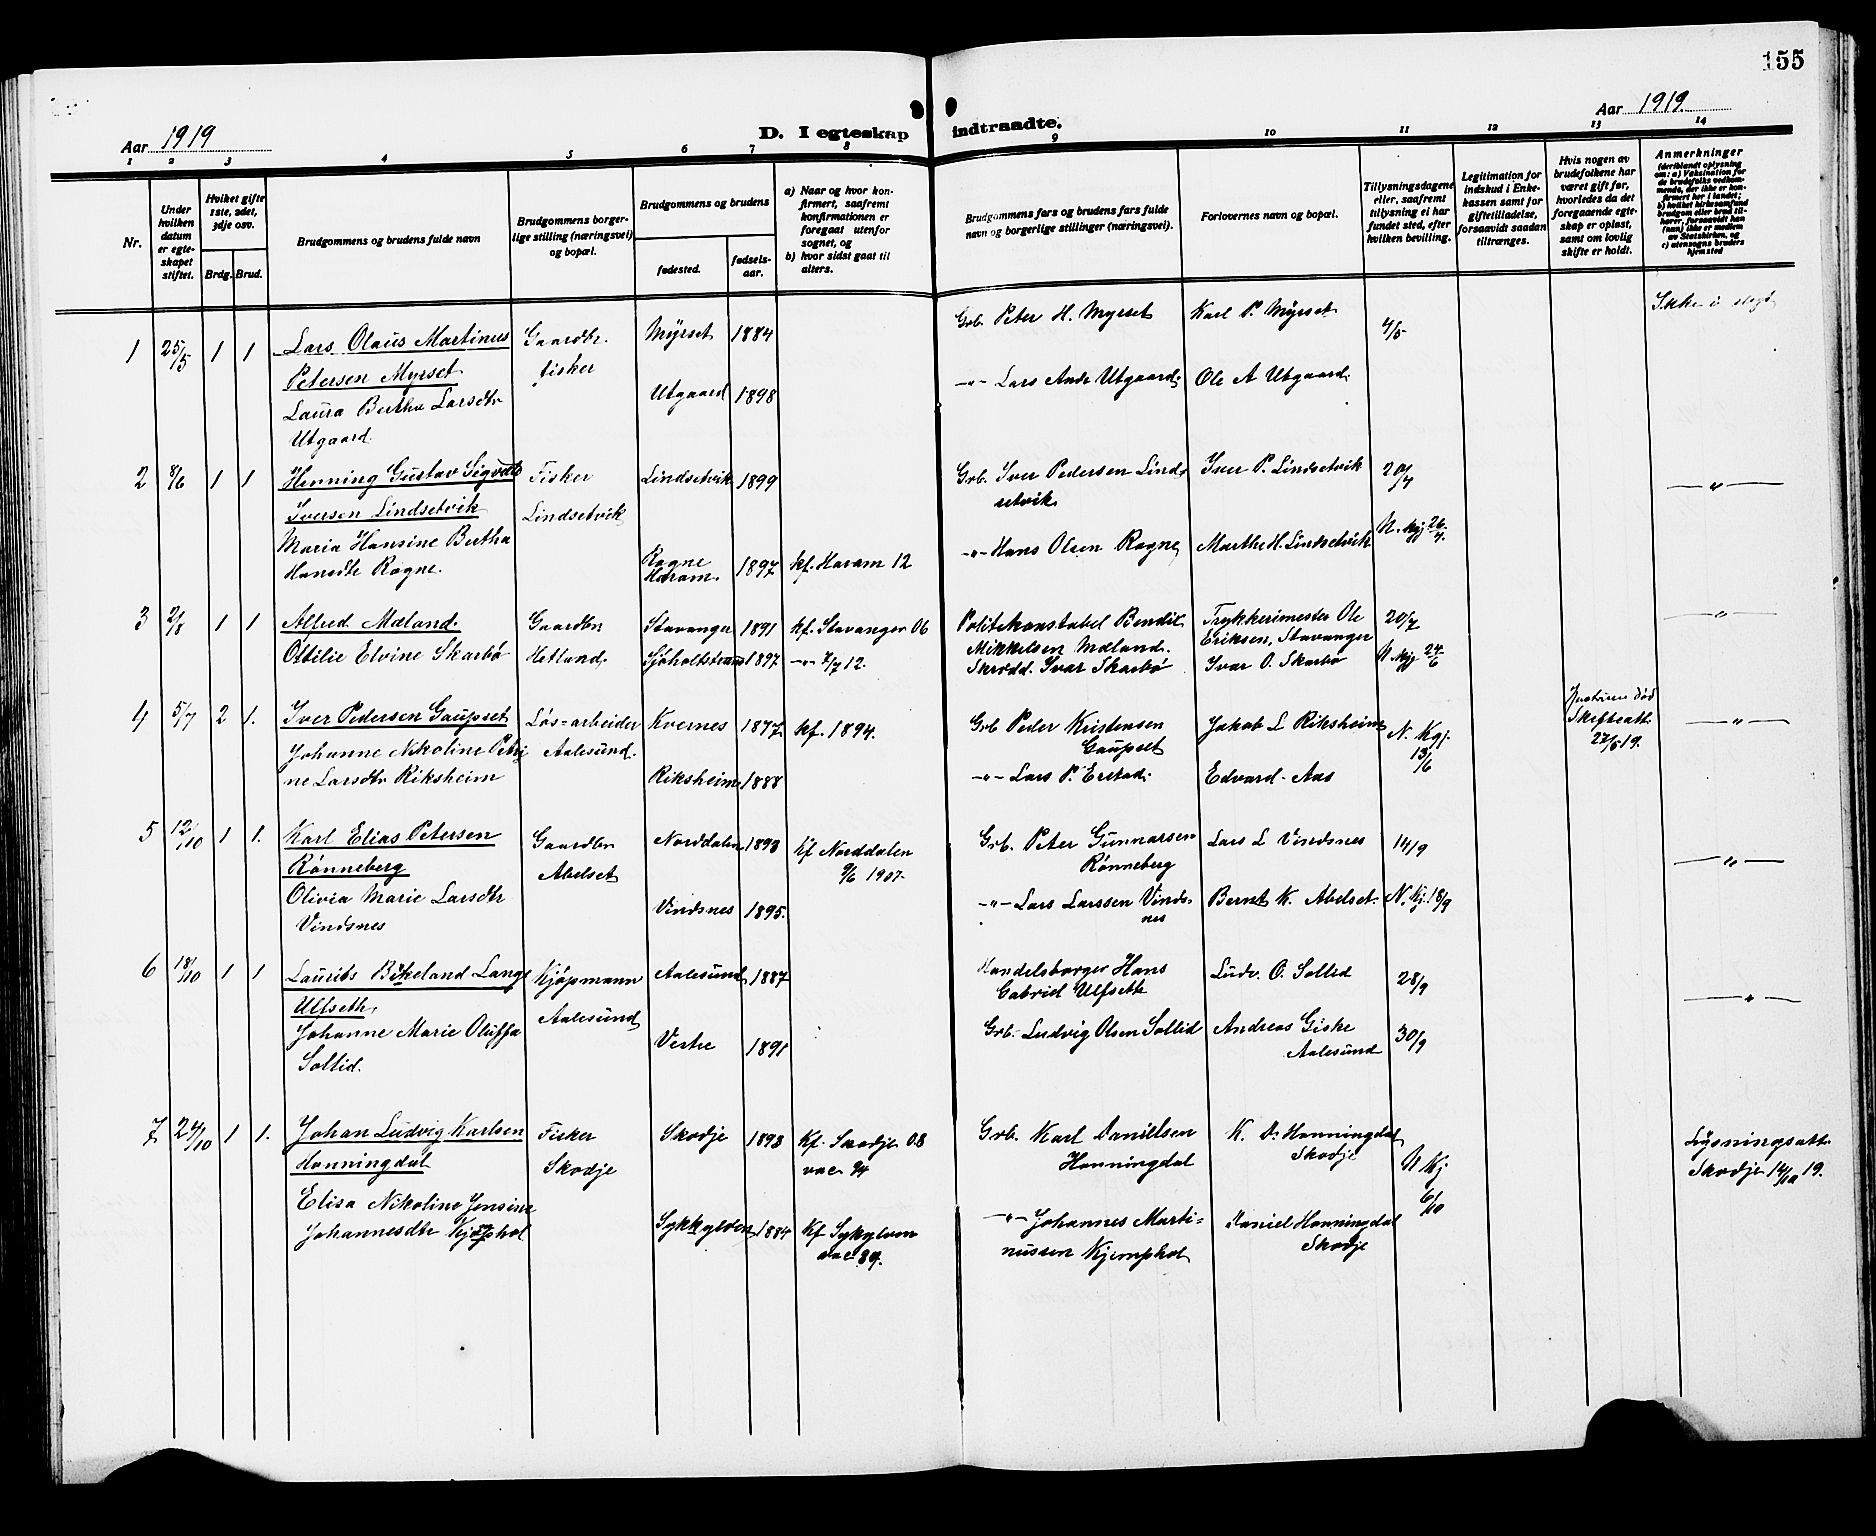 155
Aar 1919
D. I egteskap indtraadte.
Aar 1919.
1 2 3 4 5 6 7 8 9 10 11 12 13 14
Nr.
Under hvilken datum er egteskapet stiftet.
Hvilket gifte 1ste, 2det, 3dje osv.
Brdg. Brud.
Brudgommens og brudens fulde navn
Brudgommens borgerlige stilling (næringsvei) og bopæl.
Brudgommens og brudens
fødested.
fødselsaar.
a) Naar og hvor konfirmert, saafremt konfirmationen er foregaat utenfor sognet, og
b) hvor sidst gaat til alters.
Brudgommens fars og brudens fars fulde navn og borgerlige stillinger (næringsvei).
Forlovernes navn og bopæl.
Tillysningsdagene eller, saafremt tillysning ei har fundet sted, efter hvilken bevilling.
Legitimation for indskud i Enkekassen samt for giftetilladelse, forsaavidt saadan tiltrænges.
Hvis nogen av brudefolkene har været gift før, hvorledes da det foregaaende egteskap er opløst, samt om lovlig skifte er holdt.
Anmerkninger
(deriblandt oplysning om: a) Vaksination for de brudefolks vedkommende, der ikke er konfirmert her i landet; b) hvilket kirkesamfund brudgom eller brud tilhører, forsaavidt han (hun) ikke er medlem av Statskirken, og c) utensogns bruders hjemsted
1 25/5 1 1 Lars Olaus Martinus
Petersen Myrset
Laura Bertha Larsdtr
Utgaard.
Gaardbr.
fisker
Myrset 1884
Utgaard 1898
Grb. Peter H. Myrset
-"- Lars Ands Utgaard.
Karl P. Myrset
Ole A Utgaard.
4/5
Ikke i slegt
2 8/6 1 1 Henning Gustav Sigvald
Iversen Lindsetvik
Maria Hansine Bertha
Hansdtr Rogne.
Fisker
Lindsetvik
Lindsetvik 1899
Rogne
Haram. 1897 kf. Haram 12
Grb. Iver Pedersen Lind-
setvik
-"- Hans Olsen Rogne
Iver P. Lindsetvik
Marthe H. Lindsetvik
20/7
N. Kgj 26/7.
—"—
3 2/8 1 1 Alfred Mæland.
Ottilie Elvine Skarbø
Gaardbr
Hetland.
Stavanger 1891 kf. Stavanger 06
Sjøholtstrand 1897 -"- 7/7 12.
Politikonstabel Bendik
Mikkelsen Mæland.
Skrædd. Ivar Skarbø
Trykkerimester Ole
Eriksen, Stavanger
Ivar O. Skarbø
20/7
N Kgj 24/6
—"—
4 5/7 2 1. Iver Pedersen Gaupset
Johanne Nikoline Petri
ne Larsdtr Riksheim
Løs-arbeider
Aalesund.
Kvernes 1877 kf. 1894.
Riksheim 1888
Grb Peder Kristensen
Gaupset
-"- Lars P. Erstad.
Jakob L Riksheim
Edvard Aas
N. Kgj.
13/6
Hustruen død
Skifteatt.
27/5 19.
—"—
5 12/10 1 1. Karl Elias Petersen
Rønneberg
Olivia Marie Larsdtr
Vindsnes
Gaardbr
Abelset
Norddalen 1893 Kf Norddalen
9/6 1907.
Vindsnes 1895.
Grb. Peter Gunnarsen
Rønneberg
-"- Lars Larssen Vinds-
nes
Lars L Vindsnes
Bernt K. Abelset.
14/9
N. Kj. 18/9
—"—
6 18/10 1 1 Laurits Birkeland Lange
Ulfseth,
Johanne Marie Oluffa
Sollid.
Kjøpmann
Aalesund
Aalesund 1887
Vestre 1891
Handelsborger Hans
Gabriel Ulfseth
Grb. Ludvig Olsen Sollid
Ludv. O. Sollid
Andreas Giske
Aalesund
28/9
30/9
—"—
7 24/10 1 1. Johan Ludvig Karlsen
Honningdal
Elisa Nikoline Jensine
Johannesdtr Kjøphol
Fisker
Skodje
Skodje 1893 Kf. Skodje 08
vac 94
Sykkylven 1884 Kf Sykylven
vac 89.
Grb. Karl Danielsen
Honningdal
-"- Johannes Marti-
nussen Kjemphol
K. D. Honningdal
Skodje
Daniel Honningdal
Skodje
N Kj
6/10
Lysningsatt.
Skodje 14/10 19.